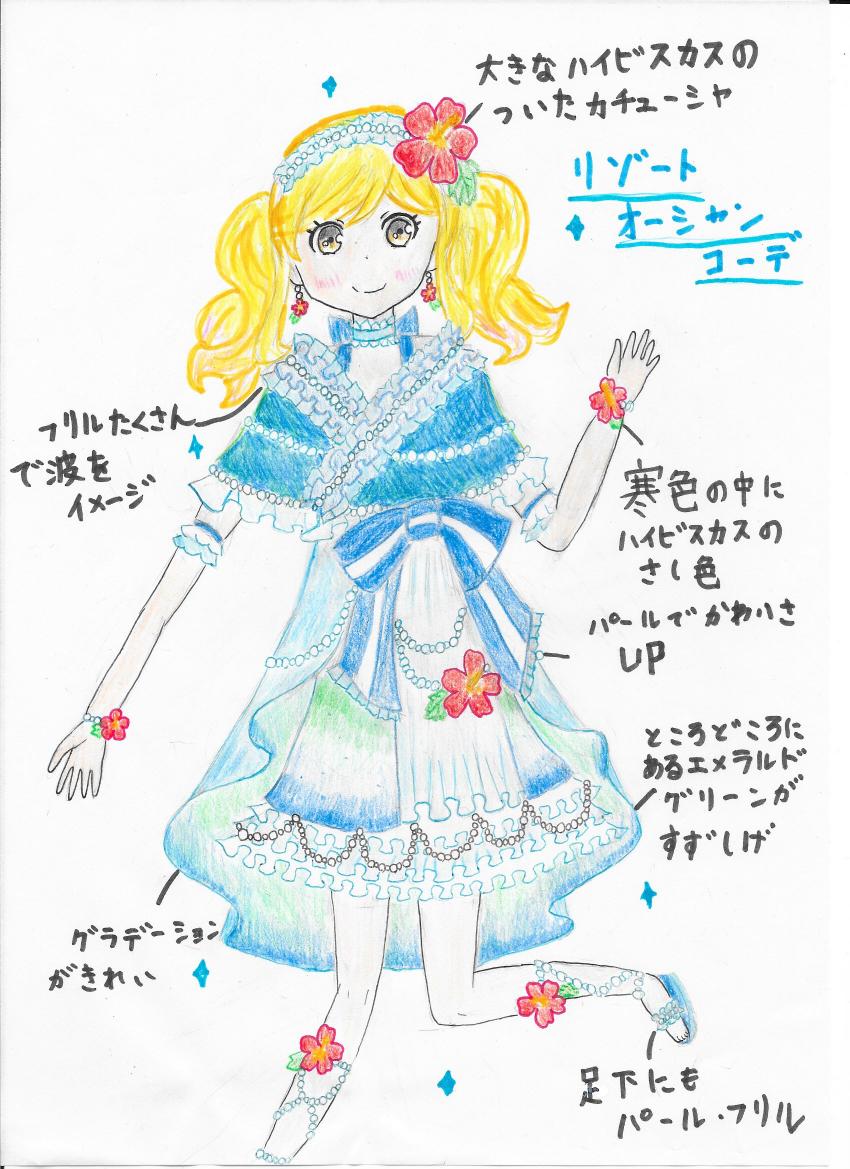 大きなハイビスカスの
ついたカチューシャ
リゾート
オーシャン
コーデ
フリルたくさん
で波を
イメージ
寒色の中に
ハイビスカスの
さし色
パールでかわいさ
UP
ところどころに
あるエメラルド
グリーンが
すずしげ
グラデーション
がきれい
足下にも
パール・フリル